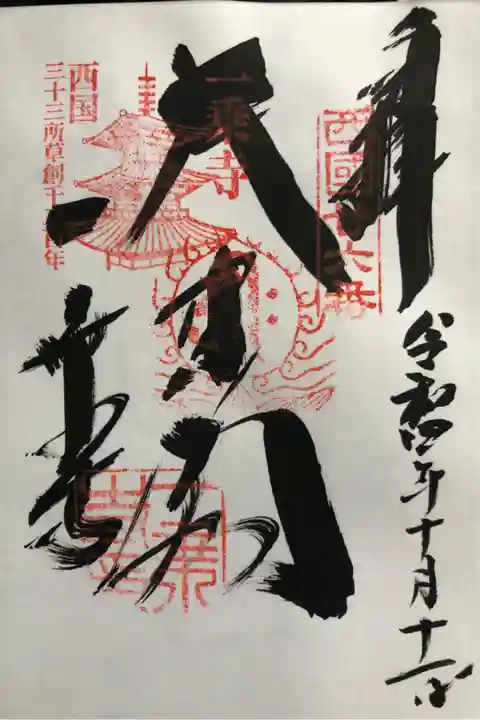 奉拝
西國廿六番
令和四年十月十一日
大悲閣
一乘寺
一乗寺
西国
三十三所草創千三百年